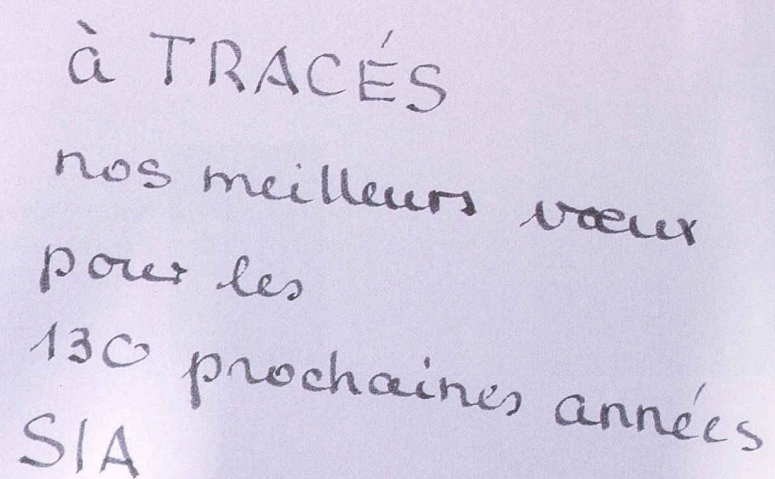 à TRACÉS
nos meilleurs vœux
pour les
130 prochaines années
SIA